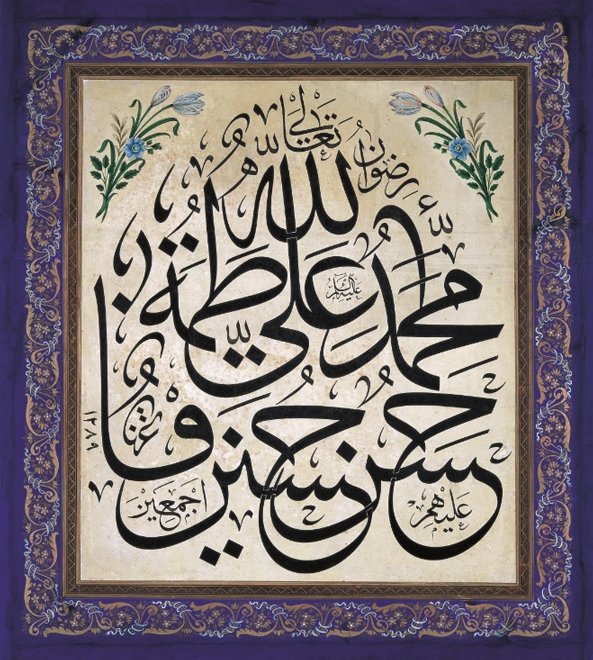 رضوان الله تعالى
الله
محمد علي فاطمة
عليه السلام
حسن حسين
عليهم اجمعين
١٢٨٩